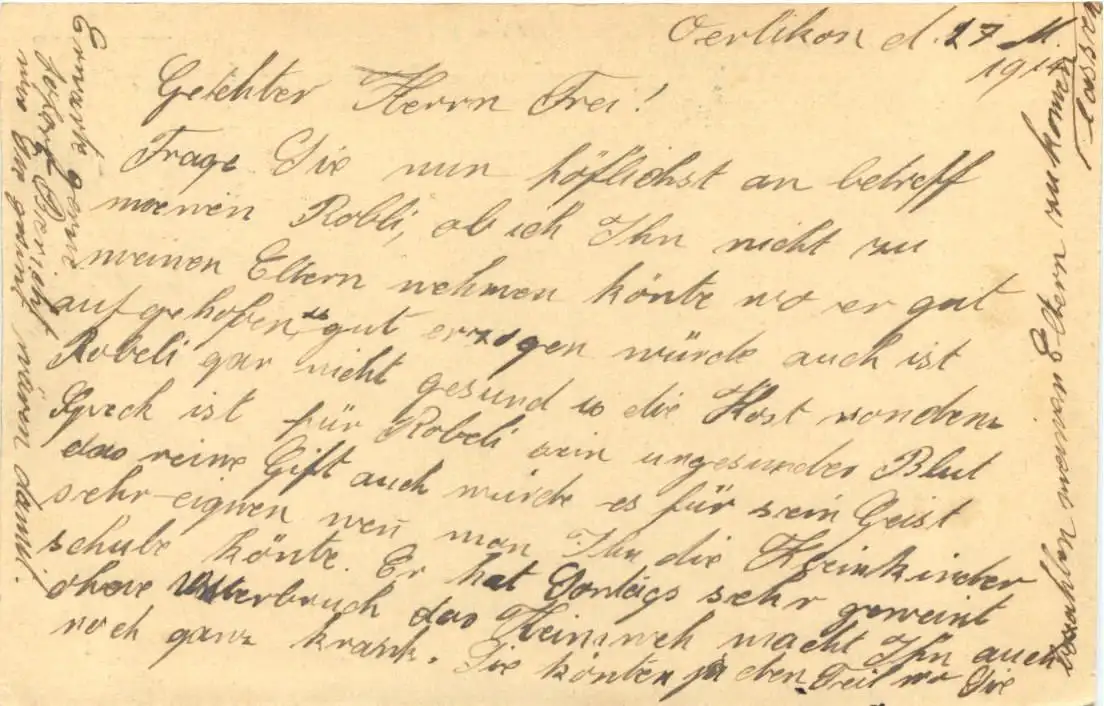 Oerlikon d. 27 M.
1914
Geehter Herrn Frei!
Frage Sie nun höflichst an betreff
meinen Robli, ob ich Ihn nicht zu
meinen Eltern nehmen könte wo er gut
aufgehoben u gut erzogen würde auch ist
Robeli gar nicht gesund u die Kost von dem
Speck ist für Robeli sein ungesundes Blut
das reine Gift auch würde es für sein Geist
sehr eignen wen̄ man Ihn die Kleinkinder
schule könte. Er hat Sontags sehr geweint
ohne Unterbruch das Heimweh macht Ihn auch
noch ganz krank. Sie könten ja den Teil wo Sie
bezahlen meinen Eltern zu komen
lassen
Erwarte gerne
sofort Bericht
nur Sie gesint wären damit.